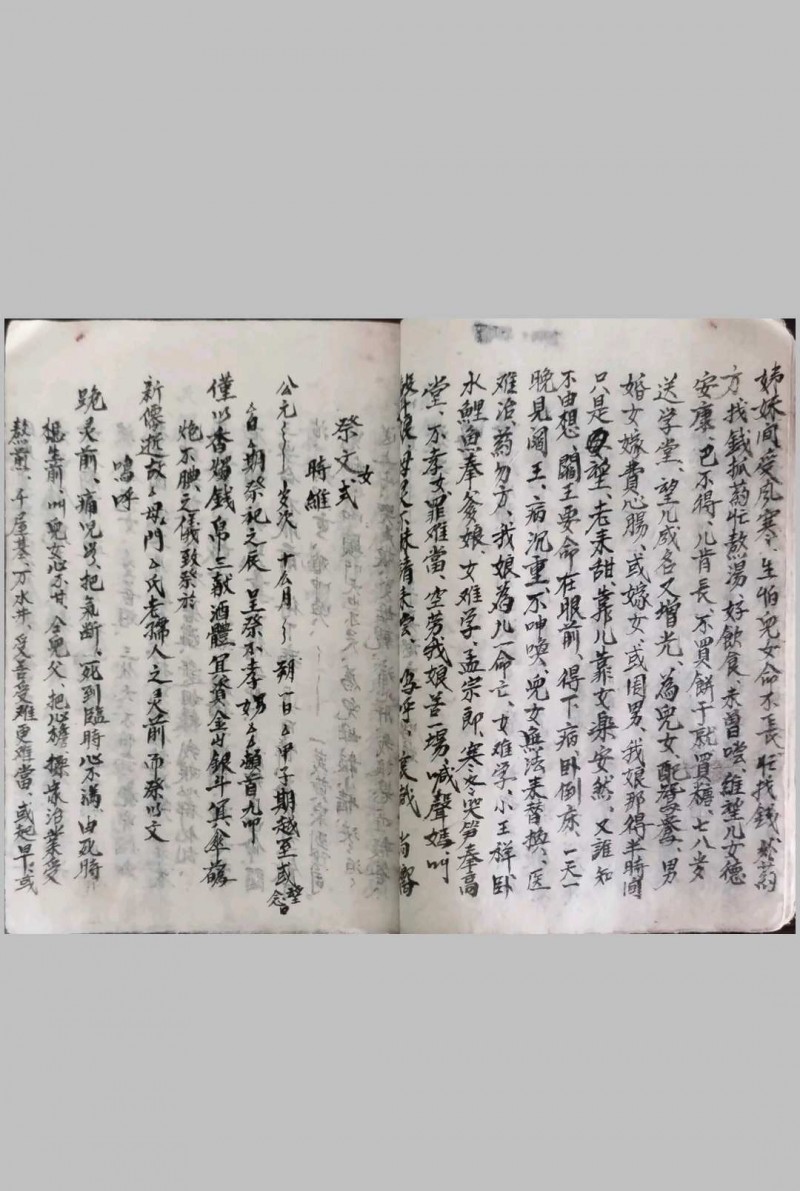 姊妹间受風寒、生怕兒女命不長、忙找錢
方、找錢抓药忙熬湯、好飲食、未曾嚐、維望儿女德
安康、巴不得、儿肯長、不買餅子就買糖、七八岁
送学堂、望儿成名又增光、為兒女、配鸳鸯、男
婚女嫁費心腸、或嫁女、或周男、我娘那得半時闲
只是望、老来甜、靠儿靠女楽安然、又誰知
不由想、閻王要命在眼前、得下病、卧倒床、一天一
晚見阎王、病沉重、不呻唤、兒女無法来替换、医
难治、药勿方、我娘為儿一命亡、女难学、小王祥卧
水鲤魚奉爹娘、女难学、孟宗郎、寒冬哭笋奉高
堂、不孝女、罪难當、空劳我娘苦一場、喊聲媽、叫
嗚呼、哀哉 尚饗
祭文女式
時維
公元 岁次 十么月 朔 日 甲子期越至或
日 期祭祀之辰 呈祭不孝 顿首九叩
僅以香燭钱帛三献酒醴冥資金山銀斗冥傘
炮不腆之儀致祭於
新僊逝故 母門 氏老孺人之灵前而祭以文
嗚呼
跪灵前、痛咒 、把氣断、死到臨時心不满、由死時
想生前、叫兒女心不甘、全兒父、把心擔、操持治業受
熬煎、千屋基、万水井、受苦受难更难當、或起早、或